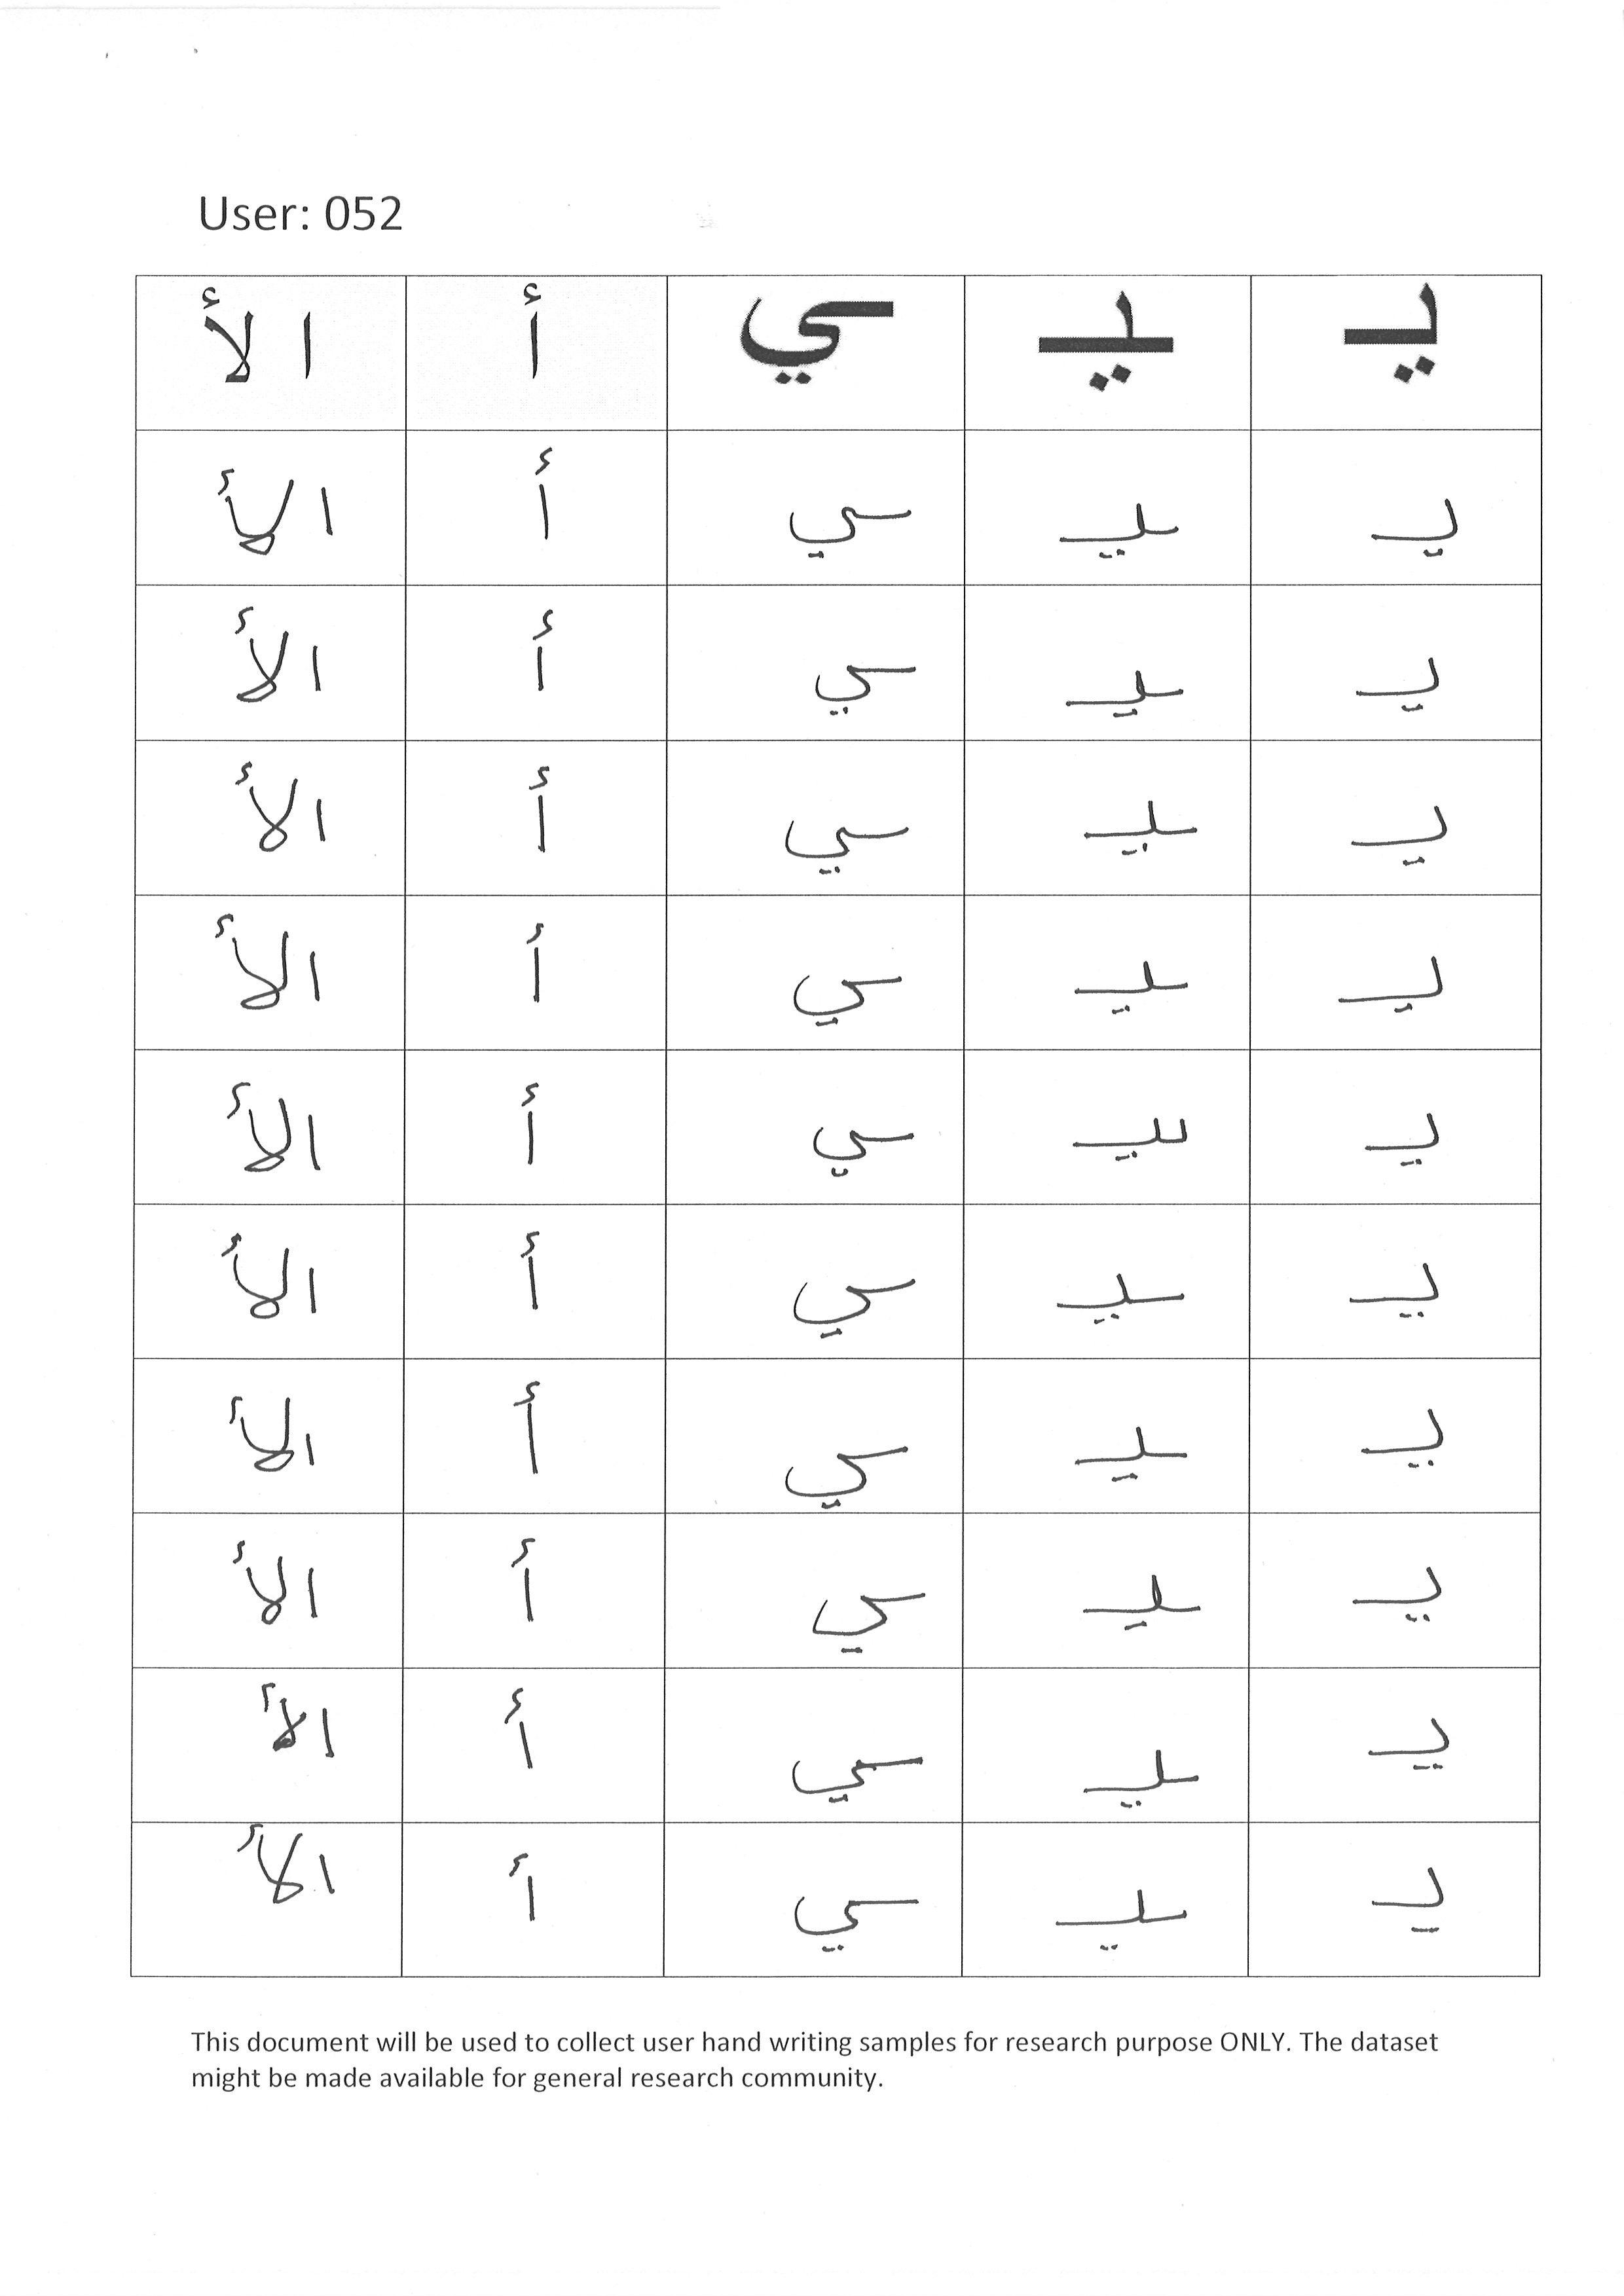 User: 052
يـ ـيـ ـي أ الأ
يـ ـيـ ـي أ الأ
يـ ـيـ ـي أ الأ
يـ ـيـ ـي أ الأ
يـ ـيـ ـي أ الأ
يـ ـيـ ـي أ الأ
يـ ـيـ ـي أ الأ
يـ ـيـ ـي أ الأ
يـ ـيـ ـي أ الأ
يـ ـيـ ـي أ الأ
يـ ـيـ ـي أ الأ
This document will be used to collect user hand writing samples for research purpose ONLY. The dataset
might be made available for general research community.